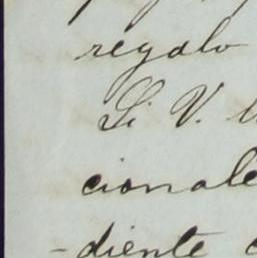 regalo
Si V.
cionale
-diente